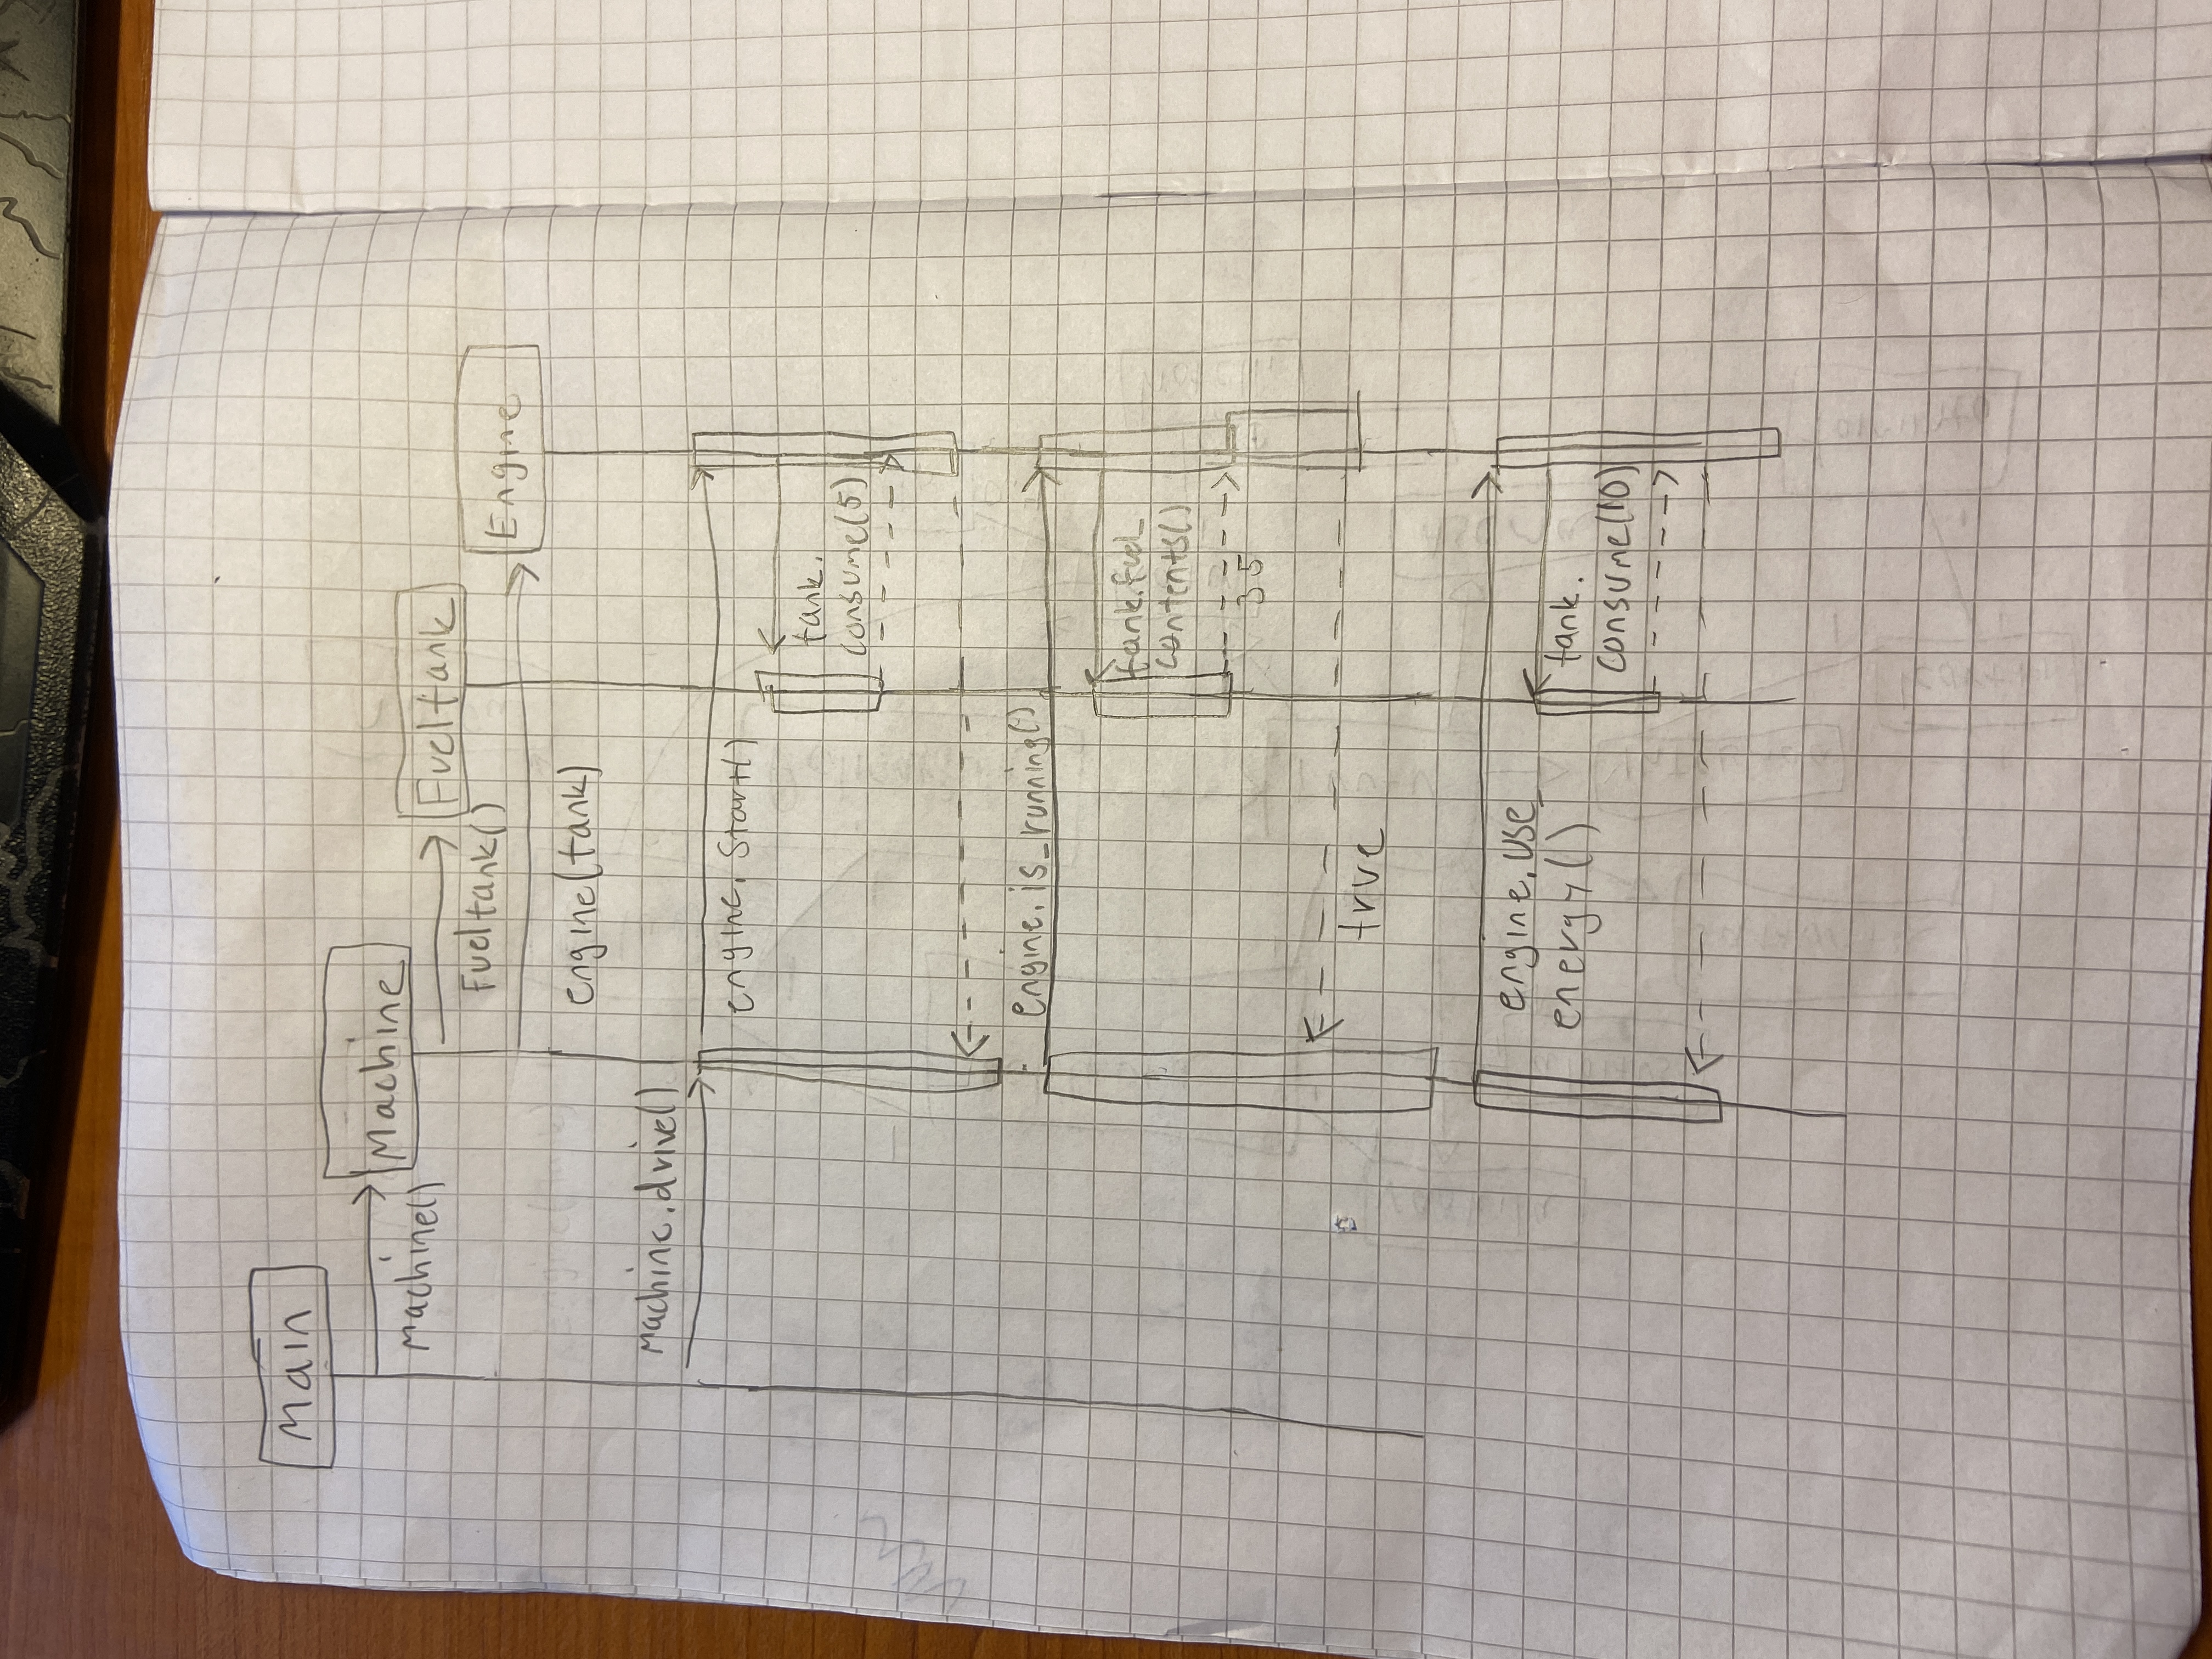 Main
Machine
Machine()
Fueltank
Fueltank()
Engine
engine(tank)
Machine.drive()
engine.start()
tank.
consume(5)
engine.is_running()
tank.fuel_
contents()
35
true
engine.use_
energy()
tank.
consume(10)